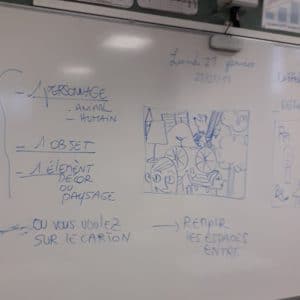 Lundi 27 janvier
- 1 PERSONNAGE
- ANIMAL
- HUMAIN
- 1 OBJET
- 1 ÉLÉMENT
DÉCOR
OU
PAYSAGE
OU VOUS VOULEZ
SUR LE CARTON
→ REMPLIR
LES ESPACES
ENTRE